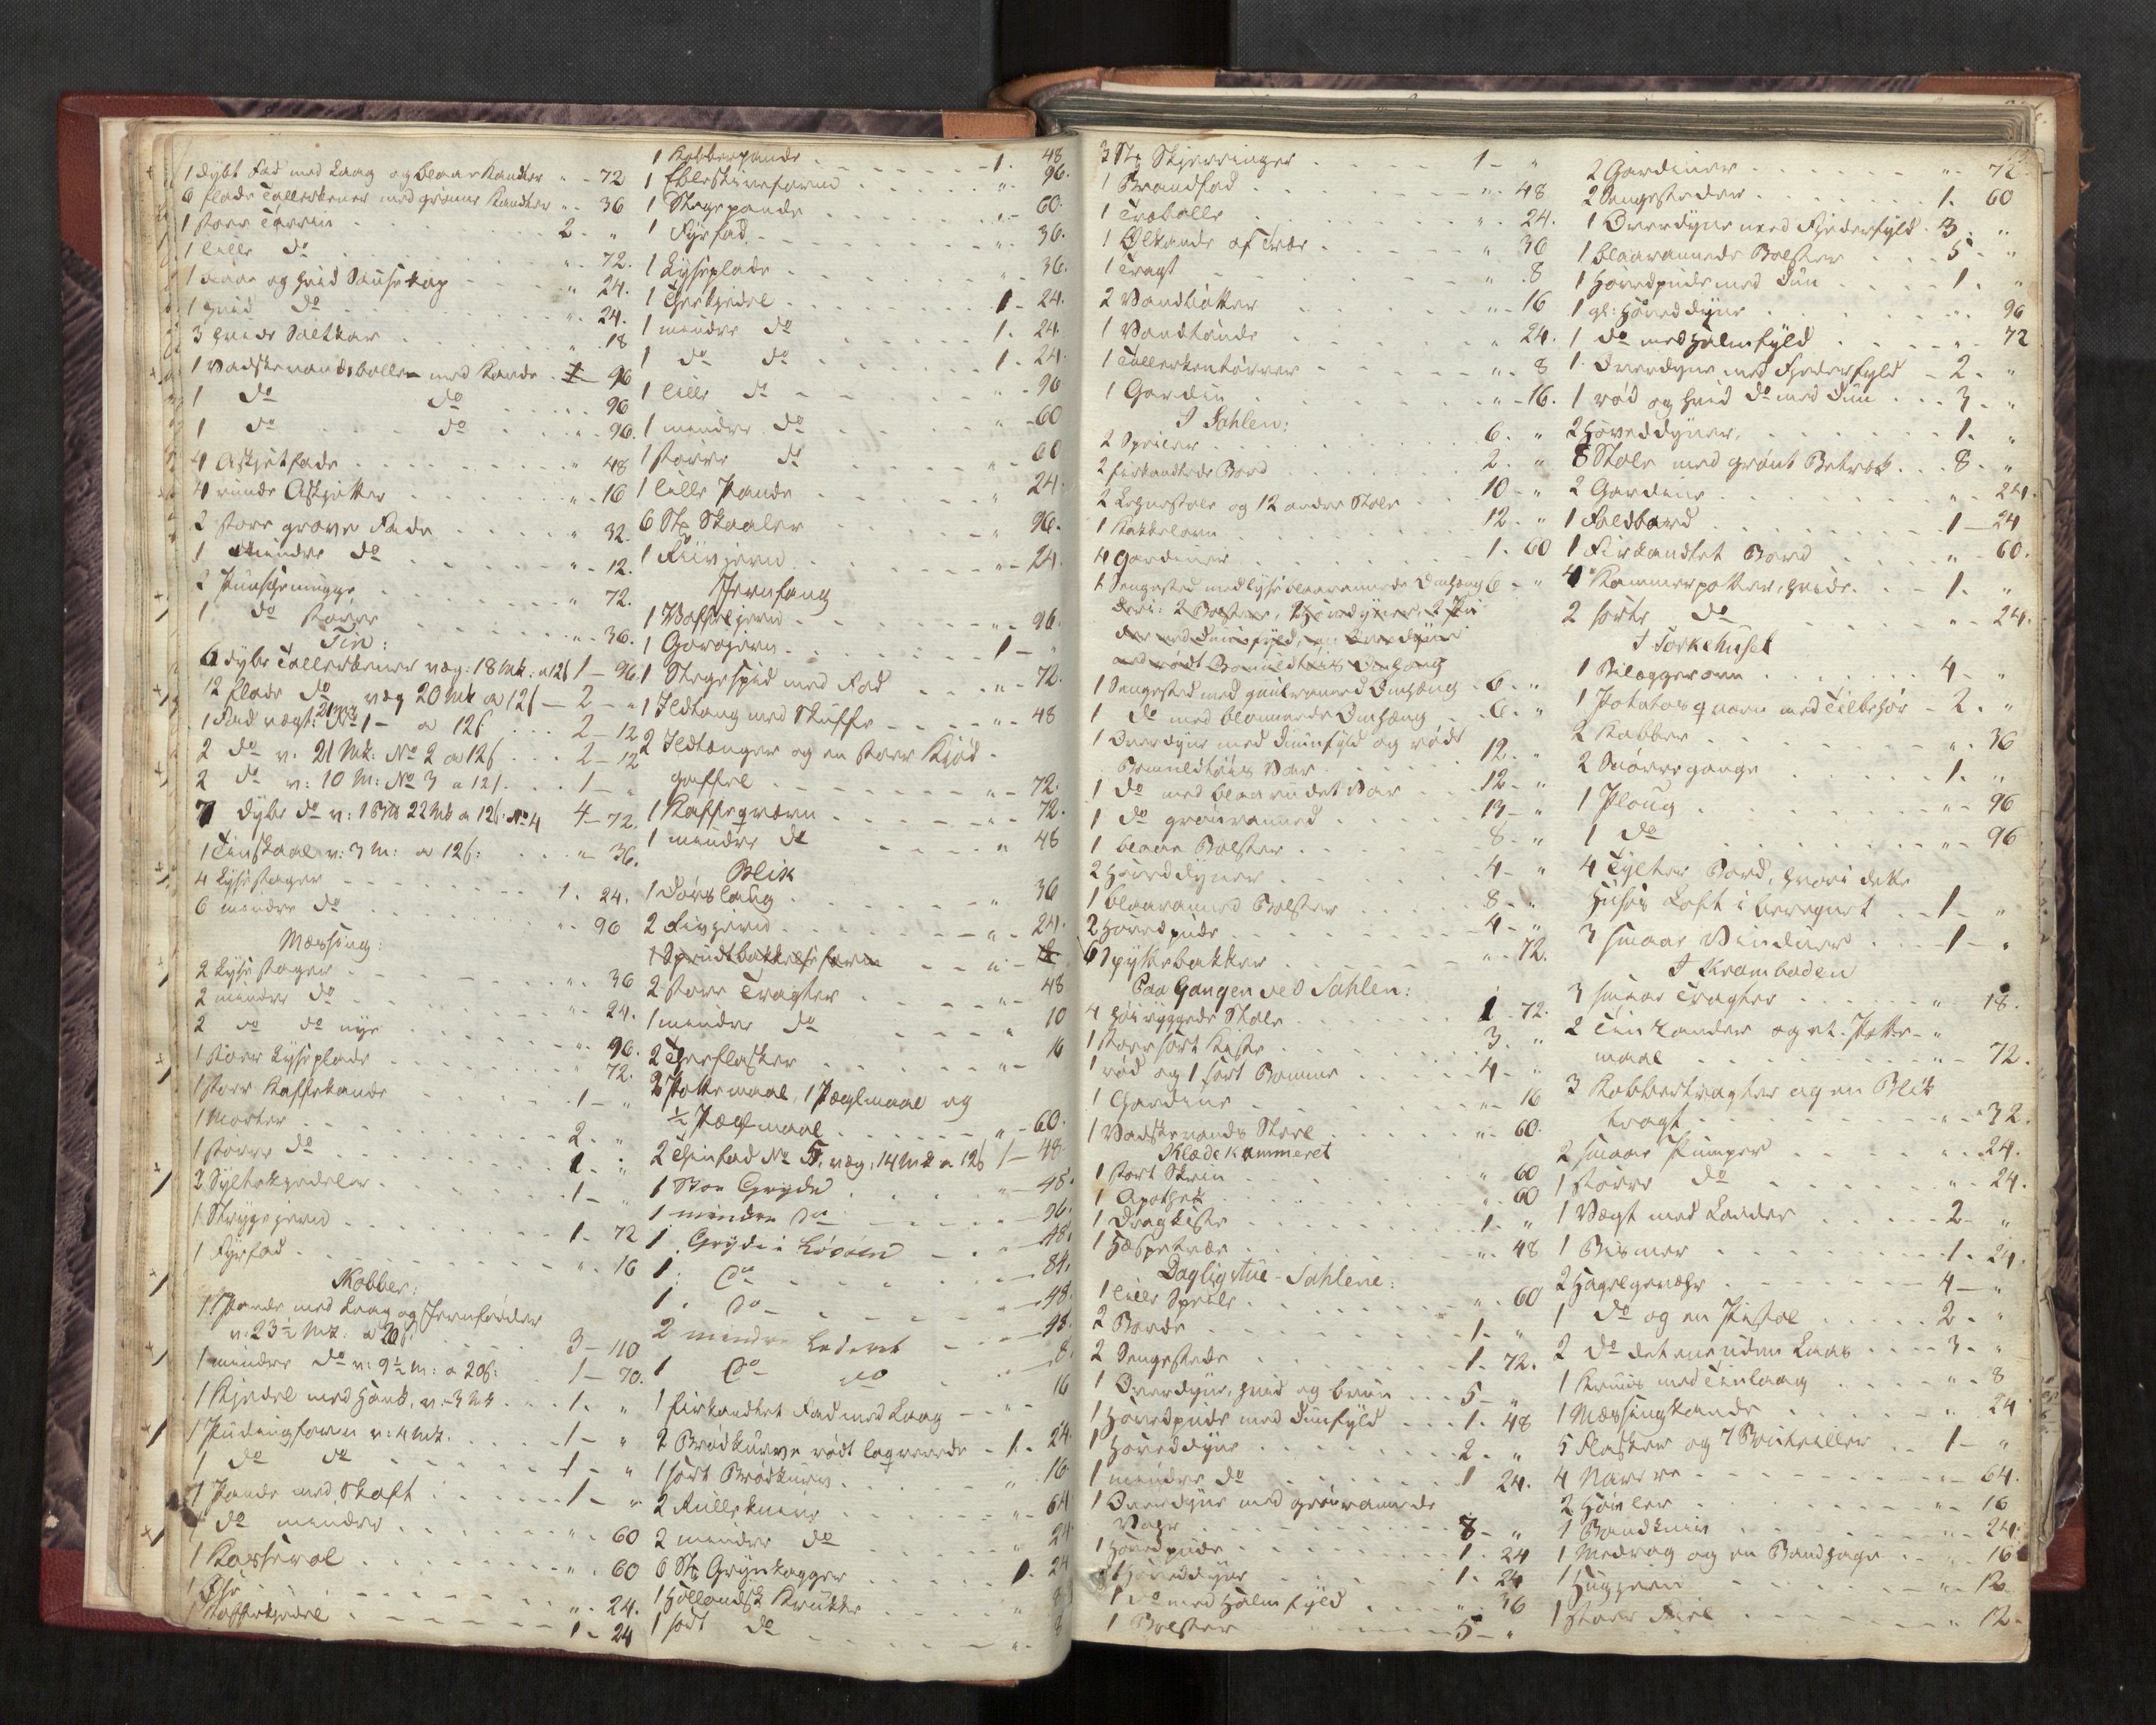 1 dybt Fad med Laag og blaae Kandter „ - 72
6 flade Tallerkener med grønne Kandter „ - 36
1 stoer Terrin 2 - „
1 lille do „ - 72.
1 blaae og hvid Sausekop „ 24.
1 hvid do „ 24.
3 hvide Saltkar „ 18
1 Vadskevandsbollen med Kande „ 96
1 do do „ 96
1 do do „ 96.
4 Askjetfade „ 48
4 runde Askjetter „ 16
2 store grove Fade „ 32.
1 mindre do „ 12.
2 Punschemugge „ 72.
1 do større „ 36.
Tin:
6 dybe Tallerkener væg: 18 Mk: a 12ß 1 - 96
12 flade do væg 20 Mk a 12ß 2 - „
1 Fad vægt: 21 Mk No 1 - a 12ß 2 - 12
2 do v: 21 Mk: No 2 a 12ß 2 - 12
2 do v: 10 M: No 3 a 12ß 1 - „
7 dybe do v: 1 Bp 22 Mk a 12ß: No 4 4 - 72.
1 Tinskaal v: 3 M: a 12ß: „ 36.
4 Lysestager 1. 24.
6 mindre do „ 96
Messing:
2 Lysestager „ 36
2 mindre do „ 24.
2 do do nye „ 96.
1 stoer Lyseplade „ 72.
1 stoer Kaffekande 1 - „
1 Morter 2. „
1 større do 1. „
2 Syltekjedeler 1 - „
1 Strygejern 1 - 72
1 Fyrfad „ 16
Kobber:
1 Pande med Laag og Jernfødder
v: 23½ Mk: a 20ß: 3 - 110
1 mindre do v: 9½ M: a 20ß: 1 - 70.
1 Kjedel med Hank, v: 3 Mk 1. „
1 Pudingform v: 4 Mk. 1 - „
1 do do 1 - „
1 Pande med Skaft 1 - „
1 do mindre „ 60
1 Kasserol „ 60
1 Øse „ 24.
1 Kaffekjedel 1 - 24
1 Kobberpande 1. 48
1 Ebleskiveform „ 96.
1 Stegepande „ 60.
1 Fyrfad „ 36.
1 Lyseplade „ 36.
1 Theekjedel 1 - 24.
1 mindre do 1. 24.
1 do do 1. 24.
1 lille do „ 96
1 mindre do „ 60
1 større do „ 60
1 lille Pande „ 24.
6 Stk Skaaler „ 96.
1 Riivjern „ 24.
Jernfang
1 Vaffeljern „ 96.
1 Gorojern 1 - „
1 Stegespid med Fad „ 72.
1 Ildtang med Skuffe „ 48
2 Ildtænger og en stoer Kjød-
gaffel „ 72.
1 Kaffeqværn „ 72.
1 mindre do „ 48
Blik
1 Dørslaug „ 36
2 Rivjern „ 24.
1 Sprudtbakkelseform
2 store Tragter „ 48
1 mindre do „ 10
2 Theeflasker „ 16
2 Pottemaal, 1 Pæglmaal og
½ Pæglmaal „ 60.
2 Thinfad No 5, væg: 14 Mk a 12ß 1 - 48
1 Stor Gryde „ 48.
1 mindre do „ 96.
1 Gryde i Løsøen „ 48.
1 do „ 84.
1 do „ 48.
2 mindre „ 48.
1 do do 8.
1 firkandtet Fad med Laag „ 16
2 Brødkurve rødt laqverede 1. 24
1 sort Brødkurv „ 16
2 Rulleknive „ 64
2 mindre do „ 24
6 Stk Grynkagger 1. 24
1 Hollandsk Krukke „ 8
1 sort do „ 8
3 Stk Skjerringer 1 - „
1 Brandfad „ 48
1 Træbolle „ 24.
1 Ølkande af Træe „ 36
1 Tragt „ 8
2 Vandbøtter „ 16
1 Vandtønde „ 24.
1 Tallerkentørrer „ 8
1 Gardin „ 16.
I Sahlen:
2 Speiler 6. „
2 firkandtede Bord 2. „
2 Lehnestole og 12 andre Stole 10 - „
1 Kakkelovn 12. „
4 Gardiner 1. 60
1 Sengested med lyseblaarannede Omhæng 6 - „
deri: 2 Bolstre, 2 Hovedyner, 2 Pu-
der med Duunfyld, en Overdyne
med rødt Bomuldtøis Omhæng
1 Sengested med guulrannet Omhæng 6. „
1 do med blommede Omhæng 6. „
1 Overdyne med Duunfyld og rødt
Bomuldtøis Var 12. „
1 do med blaarudet Var 12 - „
1 do grønrannet 13 - „
1 blaae Bolster 8. „
2 Hoveddyner 4 - „
1 blaarannet Bolster 8 - „
2 Hovedpude 4 - „
6 Spyttebakker „ 72.
Paa Gangen ved Sahlen:
4 høiryggede Stole 1. 72.
1 stoer sort Kiste 3. „
1 rød og 1 sort Bomme 4. „
1 Gardine „ 16
1 Vadskevands Stoel „ 60.
Klædekammeret
1 stort Skrin „ 60
1 Apothek „ 60
1 Dragkiste 1. „
1 Hespetræe „ 48
Dagligstue-Sahlene:
1 lille Speile „ 60
2 Borde 1. „
2 Sengestede 1. 72.
1 Overdyne, hvid og bruun 5 - „
1 Hovedpude med Duunfyld 1. 48
1 Hoveddyne 2. „
1 mindre do 1 24.
1 Overdyne med grønrannede
Vahr 8 - „
1 Hovedpude 1. 24
1 Hoveddyne 1. 24
1 do med Halmfyld „ 36
1 Bolster 5 - „
2 Gardiner „ 72.
2 Sengesteder 1. 60
1 Overdyne med Fjederfyld 3. „
1 blaarannede Bolster 5 - „
1 Hovedpude med Duun 1. „
1 gl: Hoveddyne „ 96
1 do med Halmfyld „ 72
1 Overdyne med Fjederfyld 2. „
1 rød og hvid do med Duun 3. „
2 Hoveddyner, 1. „
8 Stole med grønt Betræk 8. „
2 Gardiner „ 24.
1 Foldbord 1 - 24
1 Firkandtet Bord „ 60.
4 Kammerpotter, hvide. 1. „
2 sorte do „ 24.
I Torkehuset
1 Bilæggerovn 4 - „
1 Potatosqværn med Tilbehør 2. „
2 Kobber „ 36
2 Snørregange 1. „
1 Ploug „ 96
1 do „ 96
4 Tylter Bord, hvori dette
Huses Loft i beregnet 1 - „
3 smaae Vinduer 1 - „
I Kramboden
3 smaae Tragter „ 18.
2 Tinkander og et Potte-
maal „ 72.
3 Kobbertragter og en Blik
tragt „ 32.
2 smaae Pumper „ 24.
1 større do „ 24.
1 Vægt med Lodder 2 - „
1 Bismer 1. 24.
2 Hagelgeværer 4 - „
1 do og en Pistol 2. „
2 do det ene uden Laas 3 - „
1 Kruus med Tinlaag „ 8
1 Messingkande „ 24
5 Flasker og 7 Bouteiller 1 - „
4 Navere „ 64.
2 Høvler „ 16
1 Bandkniv „ 24.
1 Medrag og en Bandhage „ 16
1 Huggjern „ 12
1 stoer Fiil „ 12.